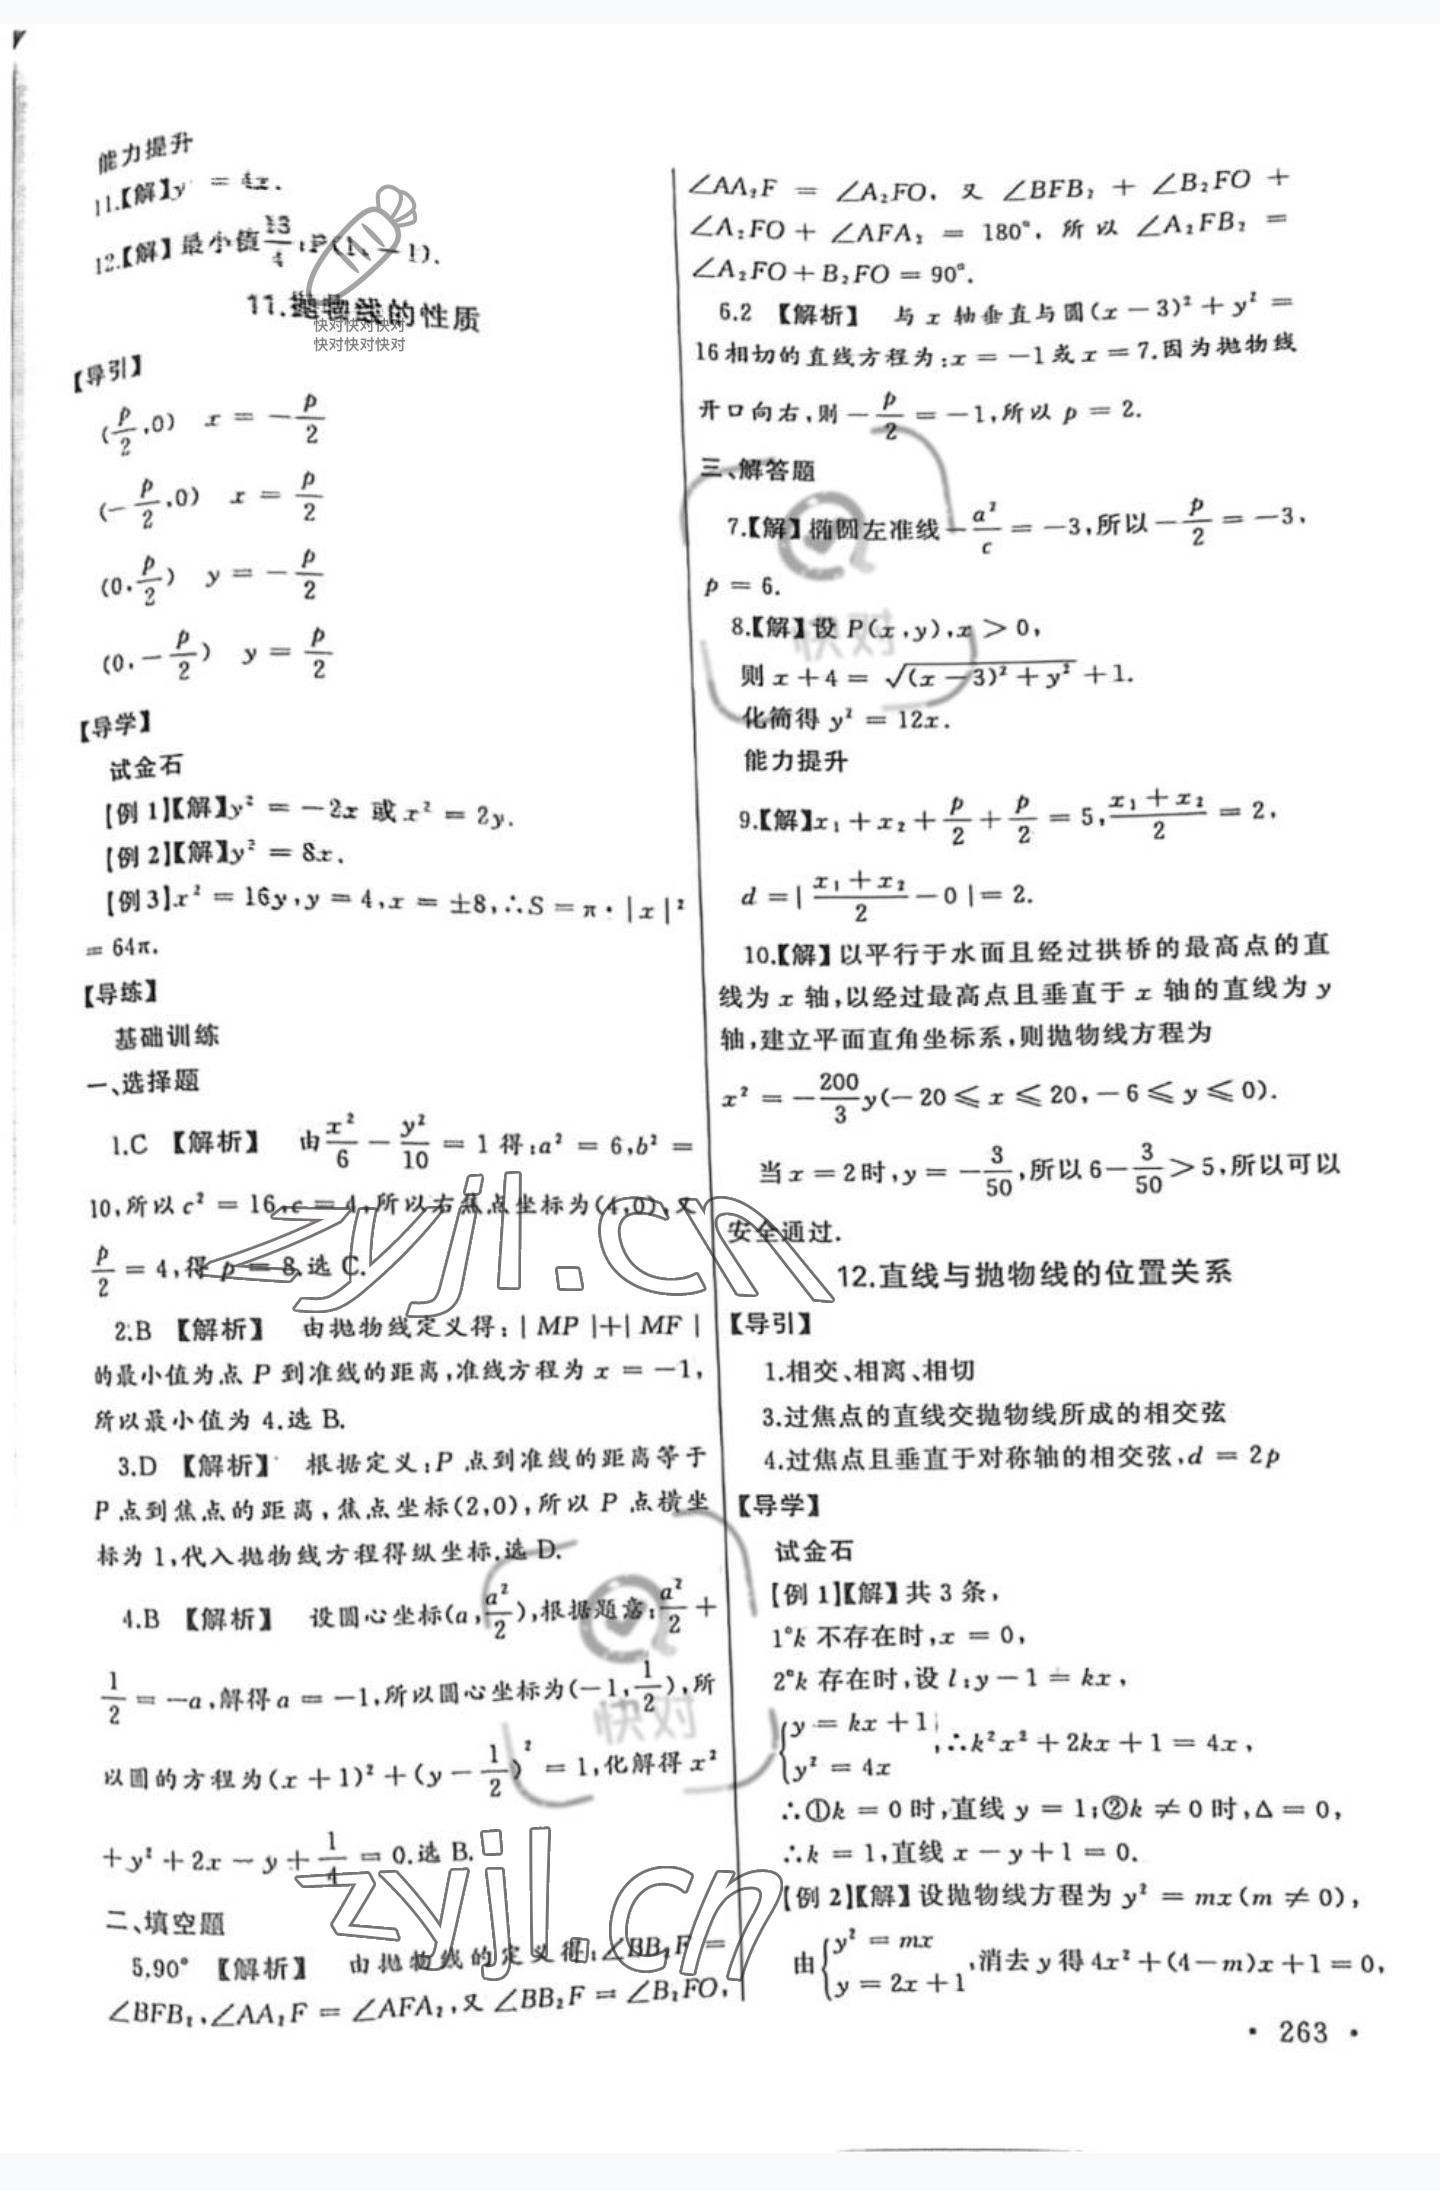 能力提升
11.【解】y² = 4x.
12.【解】最小值13/4;P(1,-1).
11.抛物线的性质
快对快对快对
快对快对快对
【导引】
(p/2,0) x = -p/2
(-p/2,0) x = p/2
(0,p/2) y = -p/2
(0,-p/2) y = p/2
【导学】
试金石
【例1】【解】y² = -2x 或 x² = 2y.
【例2】【解】y² = 8x.
【例3】x² = 16y,y = 4,x = ±8,∴S = π·|x|²
= 64π.
【导练】
基础训练
一、选择题
1.C 【解析】 由x²/6 - y²/10 = 1 得:a² = 6,b² =
10,所以 c² = 16,c = 4,所以右焦点坐标为(4,0),又
p/2 = 4,得 p = 8.选 C.
2.B 【解析】 由抛物线定义得:|MP|+|MF|
的最小值为点 P 到准线的距离,准线方程为 x = -1,
所以最小值为 4.选 B.
3.D 【解析】 根据定义:P 点到准线的距离等于
P 点到焦点的距离,焦点坐标(2,0),所以 P 点横坐
标为 1,代入抛物线方程得纵坐标.选 D.
4.B 【解析】 设圆心坐标(a,a²/2),根据题意:a²/2 +
1/2 = -a,解得 a = -1,所以圆心坐标为(-1,1/2),所
以圆的方程为(x+1)² + (y - 1/2)² = 1,化解得 x²
+ y² + 2x - y + 1/4 = 0.选 B.
二、填空题
5.90° 【解析】 由抛物线的定义得:∠BB₂F =
∠BFB₂,∠AA₂F = ∠AFA₂,又∠BB₂F = ∠B₂FO,
∠AA₂F = ∠A₂FO, 又 ∠BFB₂ + ∠B₂FO +
∠A₂FO + ∠AFA₂ = 180°, 所以 ∠A₂FB₂ =
∠A₂FO + B₂FO = 90°.
6.2 【解析】 与 x 轴垂直与圆(x-3)² + y² =
16相切的直线方程为:x = -1或 x = 7.因为抛物线
开口向右,则 -p/2 = -1,所以 p = 2.
三、解答题
7.【解】椭圆左准线 -a²/c = -3,所以 -p/2 = -3,
p = 6.
8.【解】设 P(x,y),x > 0,
则 x + 4 = √((x-3)² + y²) + 1.
化简得 y² = 12x.
能力提升
9.【解】x₁ + x₂ + p/2 + p/2 = 5,(x₁+x₂)/2 = 2,
d = |(x₁+x₂)/2 - 0| = 2.
10.【解】以平行于水面且经过拱桥的最高点的直
线为 x 轴,以经过最高点且垂直于 x 轴的直线为 y
轴,建立平面直角坐标系,则抛物线方程为
x² = -200/3 y(-20 ≤ x ≤ 20,-6 ≤ y ≤ 0).
当 x = 2时,y = -3/50,所以6 - 3/50 > 5,所以可以
安全通过.
12.直线与抛物线的位置关系
【导引】
1.相交、相离、相切
3.过焦点的直线交抛物线所成的相交弦
4.过焦点且垂直于对称轴的相交弦,d = 2p
【导学】
试金石
【例1】【解】共 3 条,
1°k 不存在时,x = 0,
2°k 存在时,设 l:y-1 = kx,
{y = kx+1
y² = 4x ,∴k²x² + 2kx + 1 = 4x,
∴①k = 0 时,直线 y = 1;②k ≠ 0 时,Δ = 0,
∴k = 1,直线 x - y + 1 = 0.
【例2】【解】设抛物线方程为 y² = mx(m ≠ 0),
由{y² = mx
y = 2x+1 ,消去 y 得 4x² + (4-m)x + 1 = 0,
· 263 ·
快对
快对
zyjl.cn
zyjl.cn